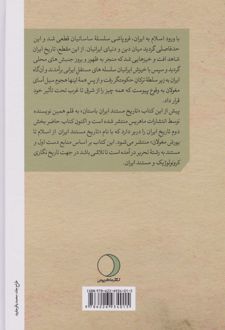 با ورود اسلام به ایران، فروپاشی سلسلهٔ ساسانیان قطعی شد و این
حدفاصلی گردید میان دین و دنیای ایرانیان. از این مقطع، تاریخ ایران
شاهد افت و خیزهایی شد که منجر به ظهور و بروز جنبش‌های محلی
گردید و سپس با خیزش ایرانیان سلسله های مستقل ایرانی برآمدند و آن‌گاه
ایران به زیر سلطهٔ ترکان حکومتگر رفت و از پس همهٔ اینها هجوم سیل‌آسای
مغولان به وقوع پیوست که همه چیز را از شرق تا غرب تحت تأثیر خود
قرار داد.
پیش از این کتاب «تاریخ مستند ایران باستان» به قلم همین نویسنده
توسط انتشارات ماهریس منتشر شده است و اکنون کتاب حاضر بخش
دوم تاریخ ایران را دربر دارد که با نام «تاریخ مستند ایران از اسلام تا
یورش مغولان» منتشر می‌شود. این کتاب بر اساس منابع دست اول و
مستند به رشتهٔ تحریر درآمده است تا تلاشی باشد در جهت تاریخ نگاری
کرونولوژیک و مستند ایران.
انتشارات ماهریس